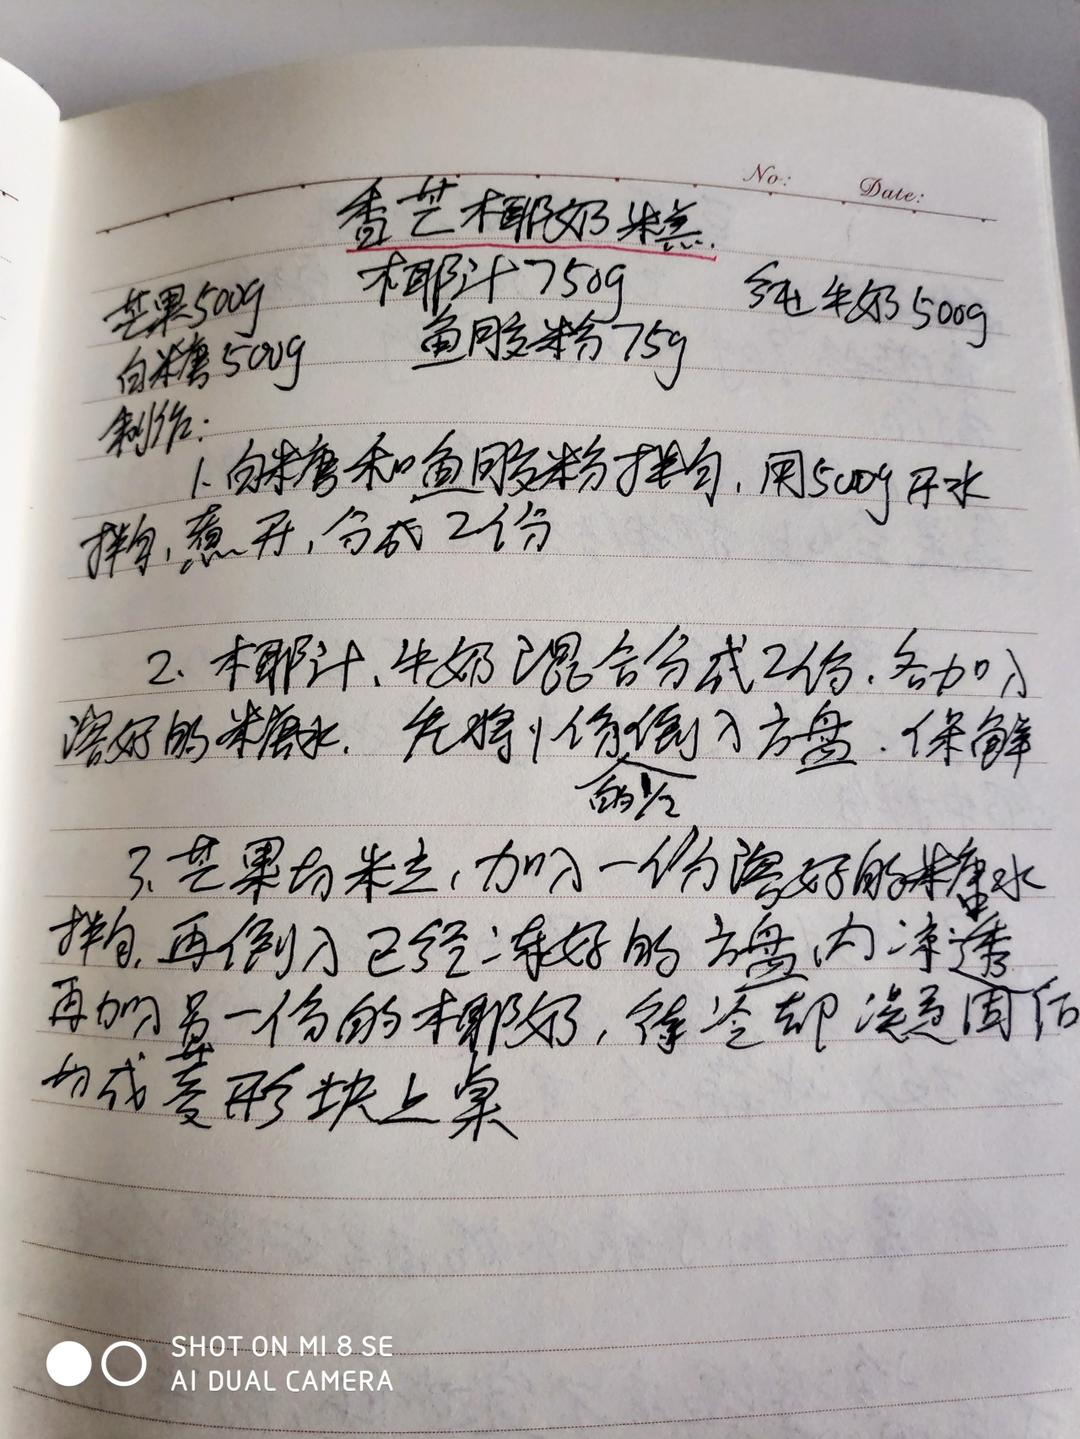 No:
Date:
香芒椰奶糕.
芒果500g 椰汁750g 纯牛奶500g
白糖500g 鱼胶粉75g
制作:
1.白糖和鱼胶粉拌匀,用500g开水
拌匀,煮开,分成2份
2.椰汁、牛奶混合分成2份.各加入
溶好的糖水.先将1份倒入方盘.保鲜
的1/2
3.芒果切粒,加入一份溶好的糖水
拌匀.再倒入已经冻好的方盘内冻透
再加入另一份的椰奶,待冷却凝固后
切成菱形块上桌
SHOT ON MI 8 SE
AI DUAL CAMERA